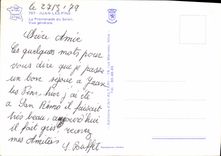 le 27/3/79
JUAN-LES-PINS
La Promenade du Soleil
Vue générale
Chère Amie
Ces quelques mots pour
vous dire que je passe
un bon séjour à Juan
les Pins. hier, j'ai été
à San Rémo il faisait
très beau, aujourd'hui
il fait gris recevez
mes Amitiés
Y. Buffet